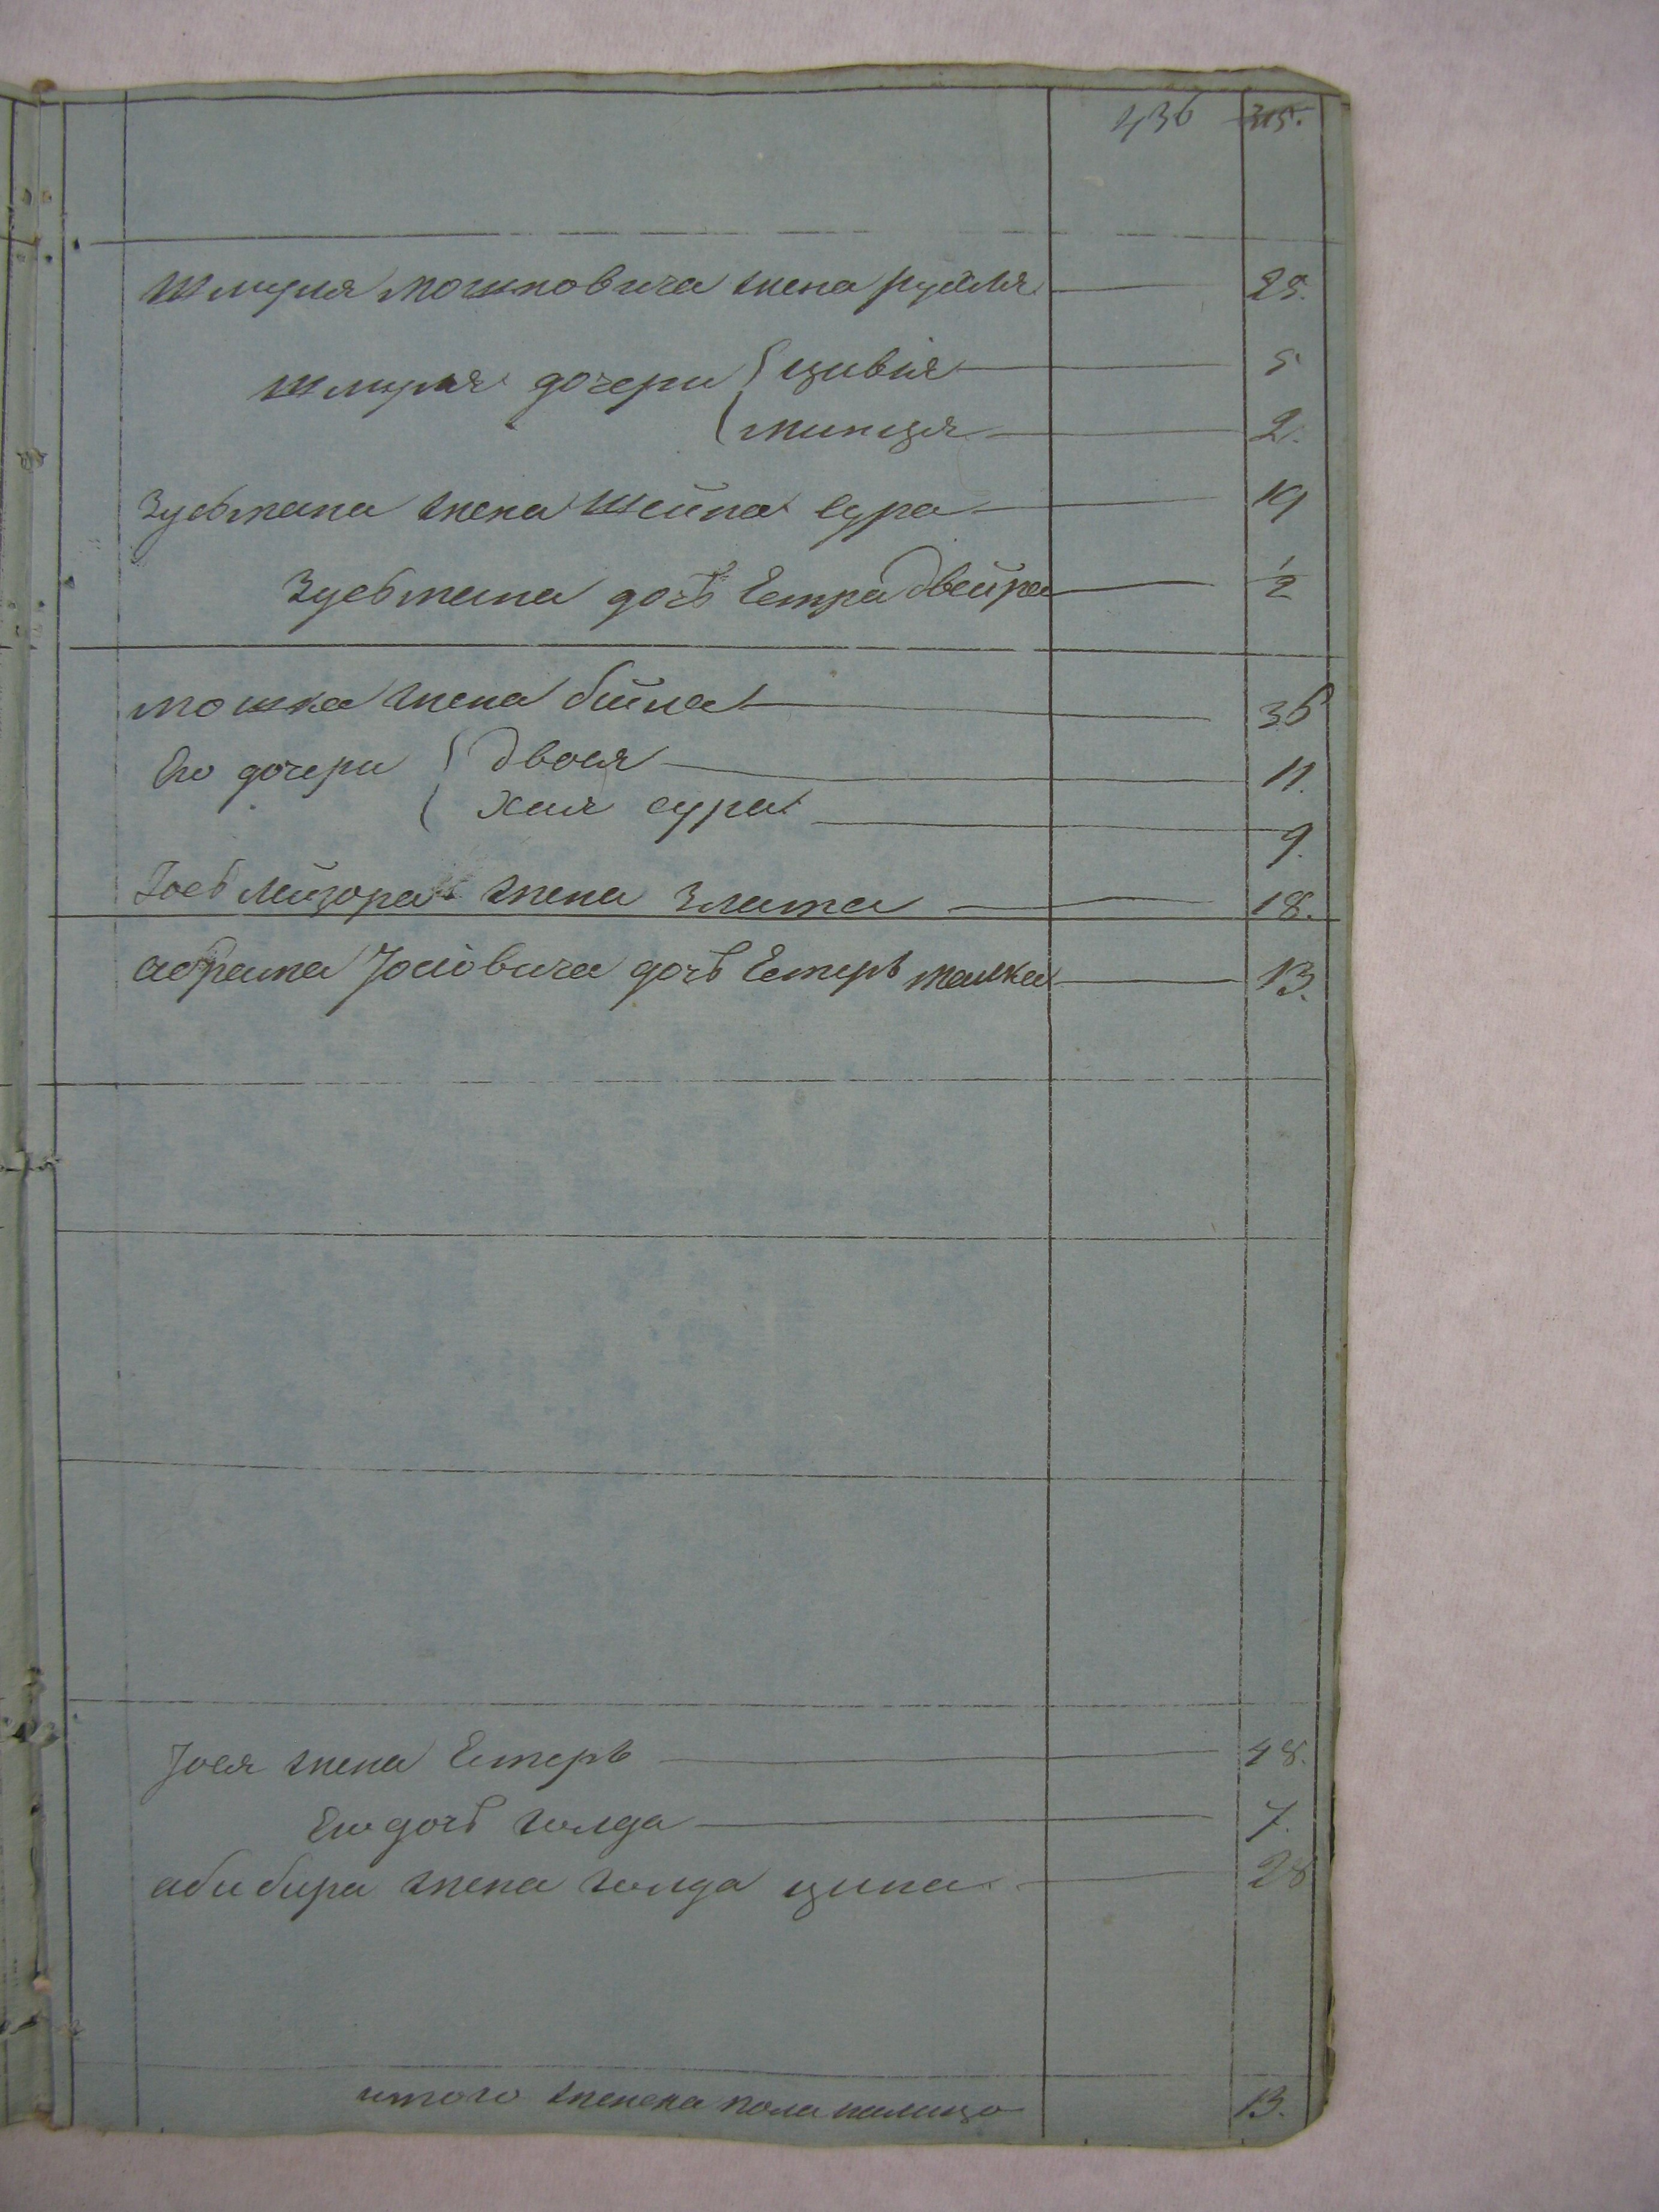 436 315.
Шмуля Мошковича жена Рухля 25.
Шмуля дочери Цивія 5
Минця 2.
Зусьмана жена Шейна Сура 19
Зусьмана дочь Естра Двейра 1/2
Мошка жена Бейла 36
Его дочери Двося 11.
Хая Сура 9.
жена Злата 18.
Абрама Іосіовича дочь Естерь Малка 13.
Іося жена Естерь 48.
Его дочь Голда 7.
жена Голда Ципа 28
итого женска пола налицо 13.